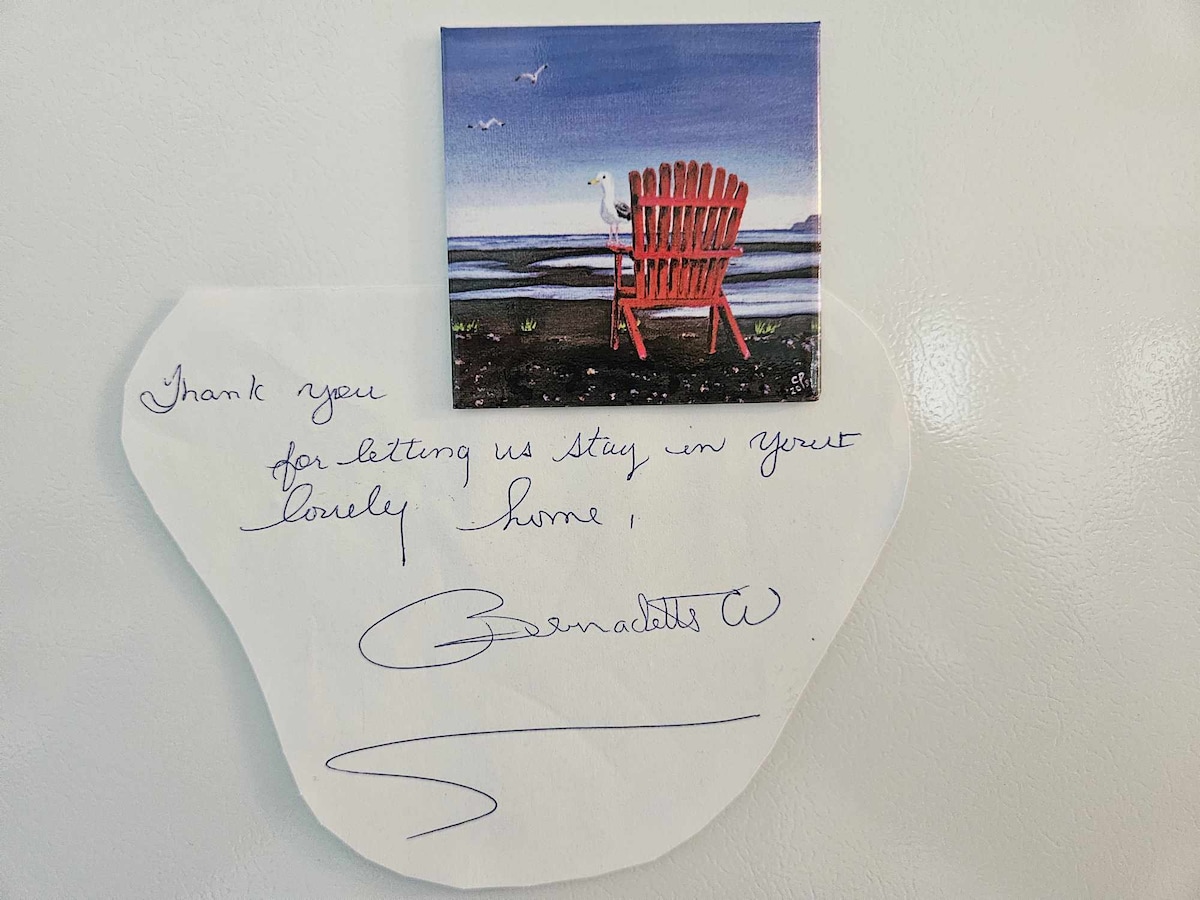 CP
Thank you
for letting us stay in your
lovely home,
Bernadette W